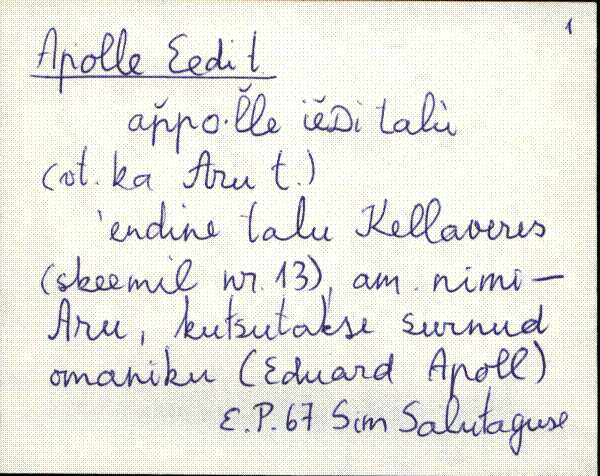 1
Apolle Eedit
ap̆po·l̆le iĕDi talù
(vt. ka Aru t.)
'endine talu Kellaveres
(skeemil nr. 13), am. nimi –
Aru, kutsutakse surnud
omaniku (Eduard Apoll)
E.P. 67 Sim Salutaguse